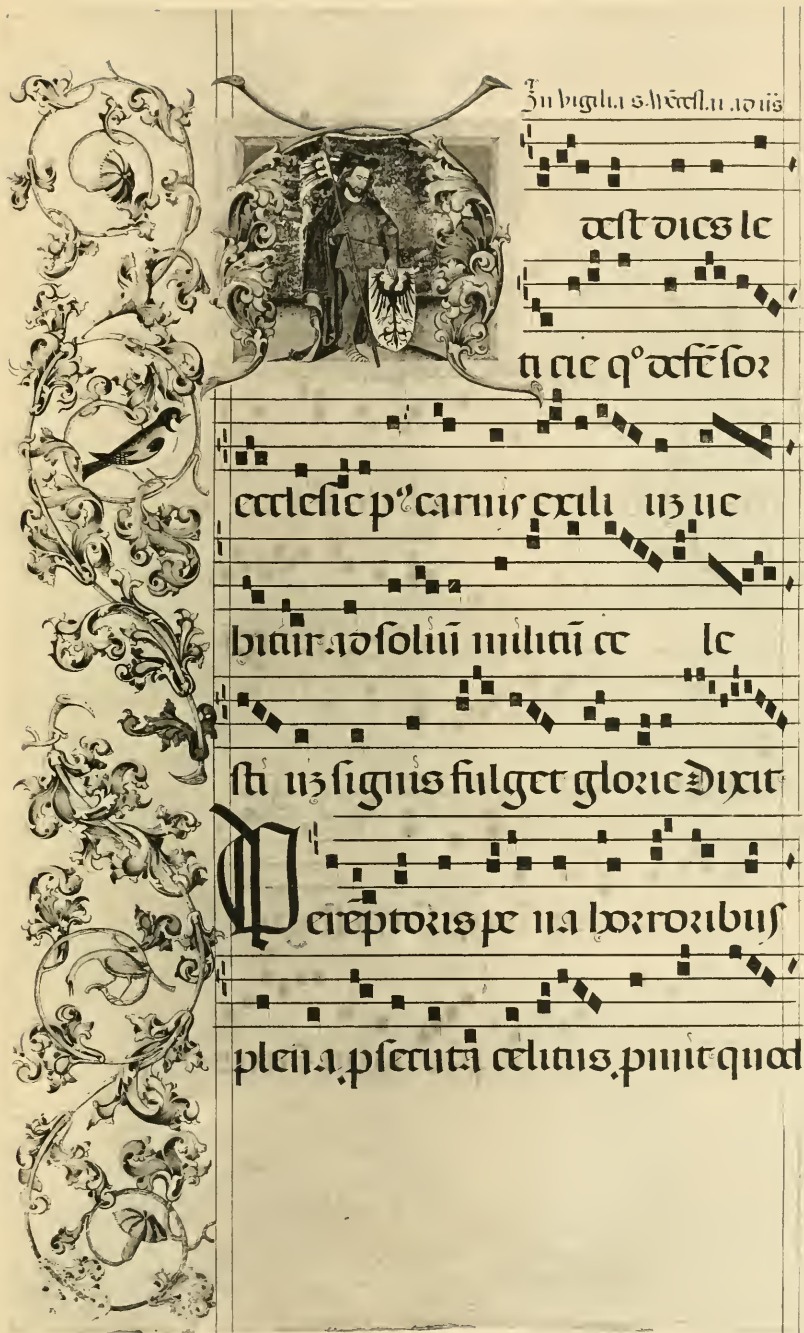 In vigilia s. Wēcesl.ai ad vīs
Adest dies le
ticie qº defēsor
ecclesie pº carnis exili uʒ ve
hitur ad soliū militū ce le
sti uʒ signis fulget glorie Dixit
Perēptoris pe na horroribus
plena psecutā celitus punit quod